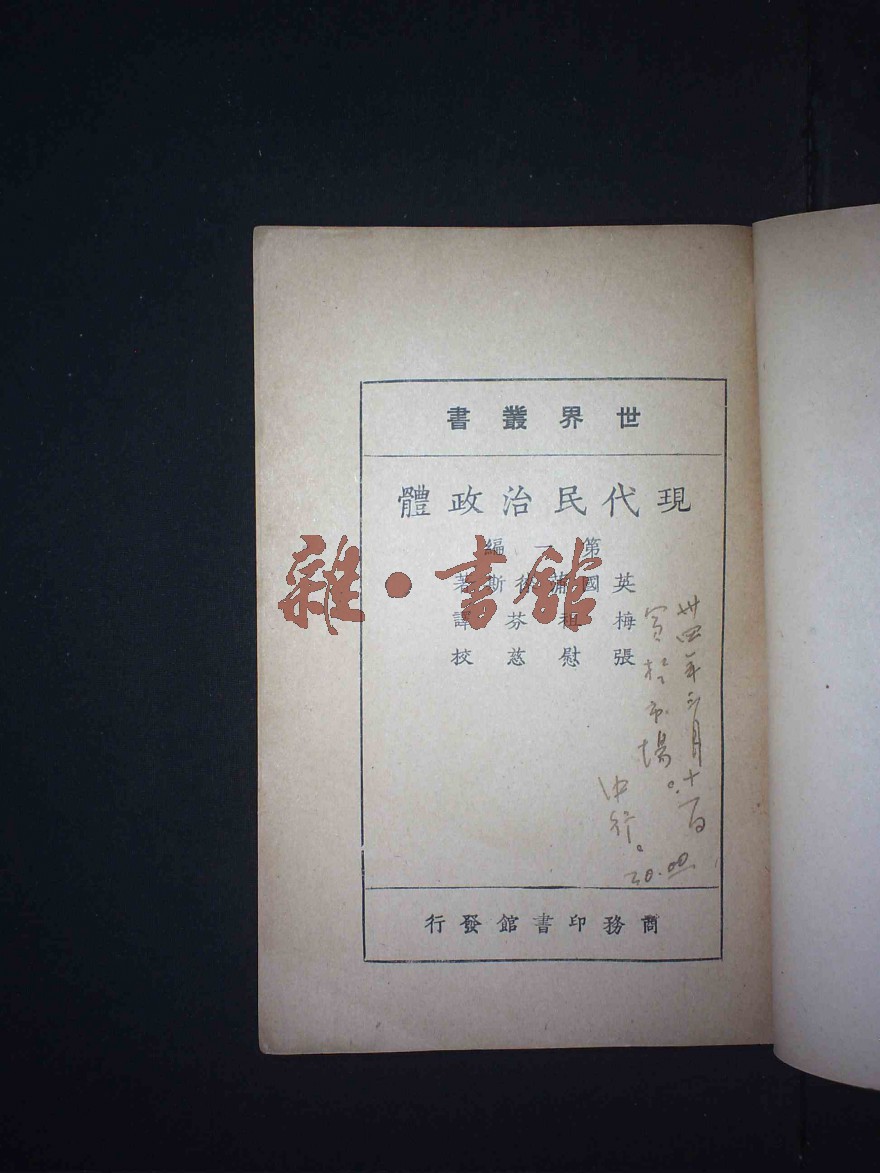 世界叢書
現代民治政體
第一編
英國蒲徠斯著
梅祖芬譯
張慰慈校
商務印書館發行
卅四年三月十一日
買於市場。
雜·書館